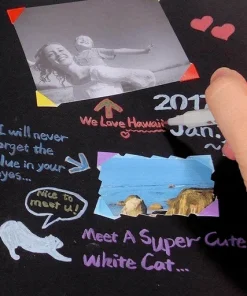 We Love Hawaii
201
Jan.
I will never
forget the
blue in your
eyes...
Nice to
meet u!
Meet A Super Cute
White Cat...